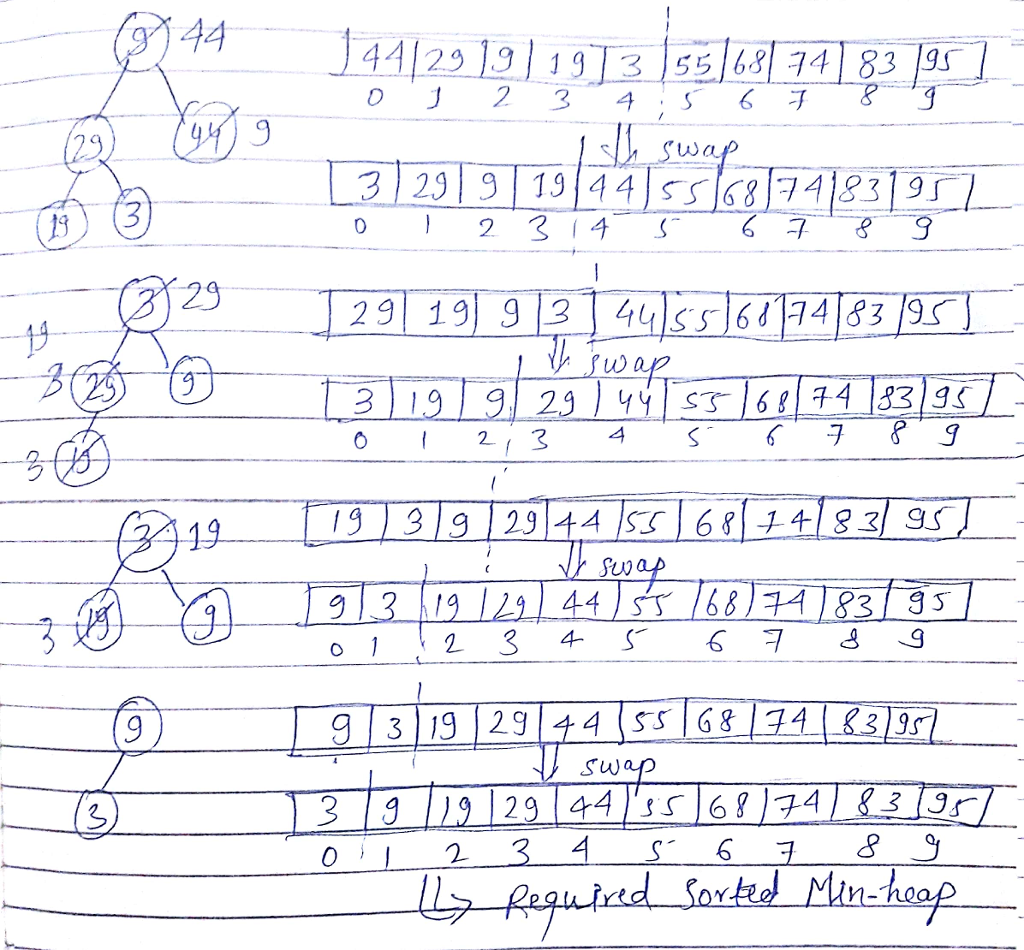 9 44
44 29 9 19 3 55 68 74 83 95
0 1 2 3 4 5 6 7 8 9
29 44 9
⇓ swap
3 29 9 19 44 55 68 74 83 95
19 3
0 1 2 3 4 5 6 7 8 9
3 29
29 19 9 3 44 55 68 74 83 95
19
⇓ swap
3 29 9
3 19 9 29 44 55 68 74 83 95
0 1 2 3 4 5 6 7 8 9
3 19
19 3 9 29 44 55 68 74 83 95
3 19
⇓ swap
3 19 9
9 3 19 29 44 55 68 74 83 95
0 1 2 3 4 5 6 7 8 9
9
9 3 19 29 44 55 68 74 83 95
⇓ swap
3
3 9 19 29 44 55 68 74 83 95
0 1 2 3 4 5 6 7 8 9
↳ Required Sorted Min-heap